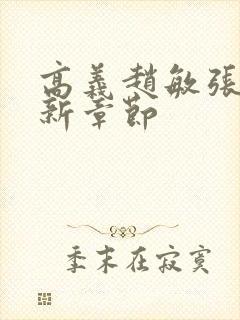 高義趙敏張
新章節
季末在寂寞